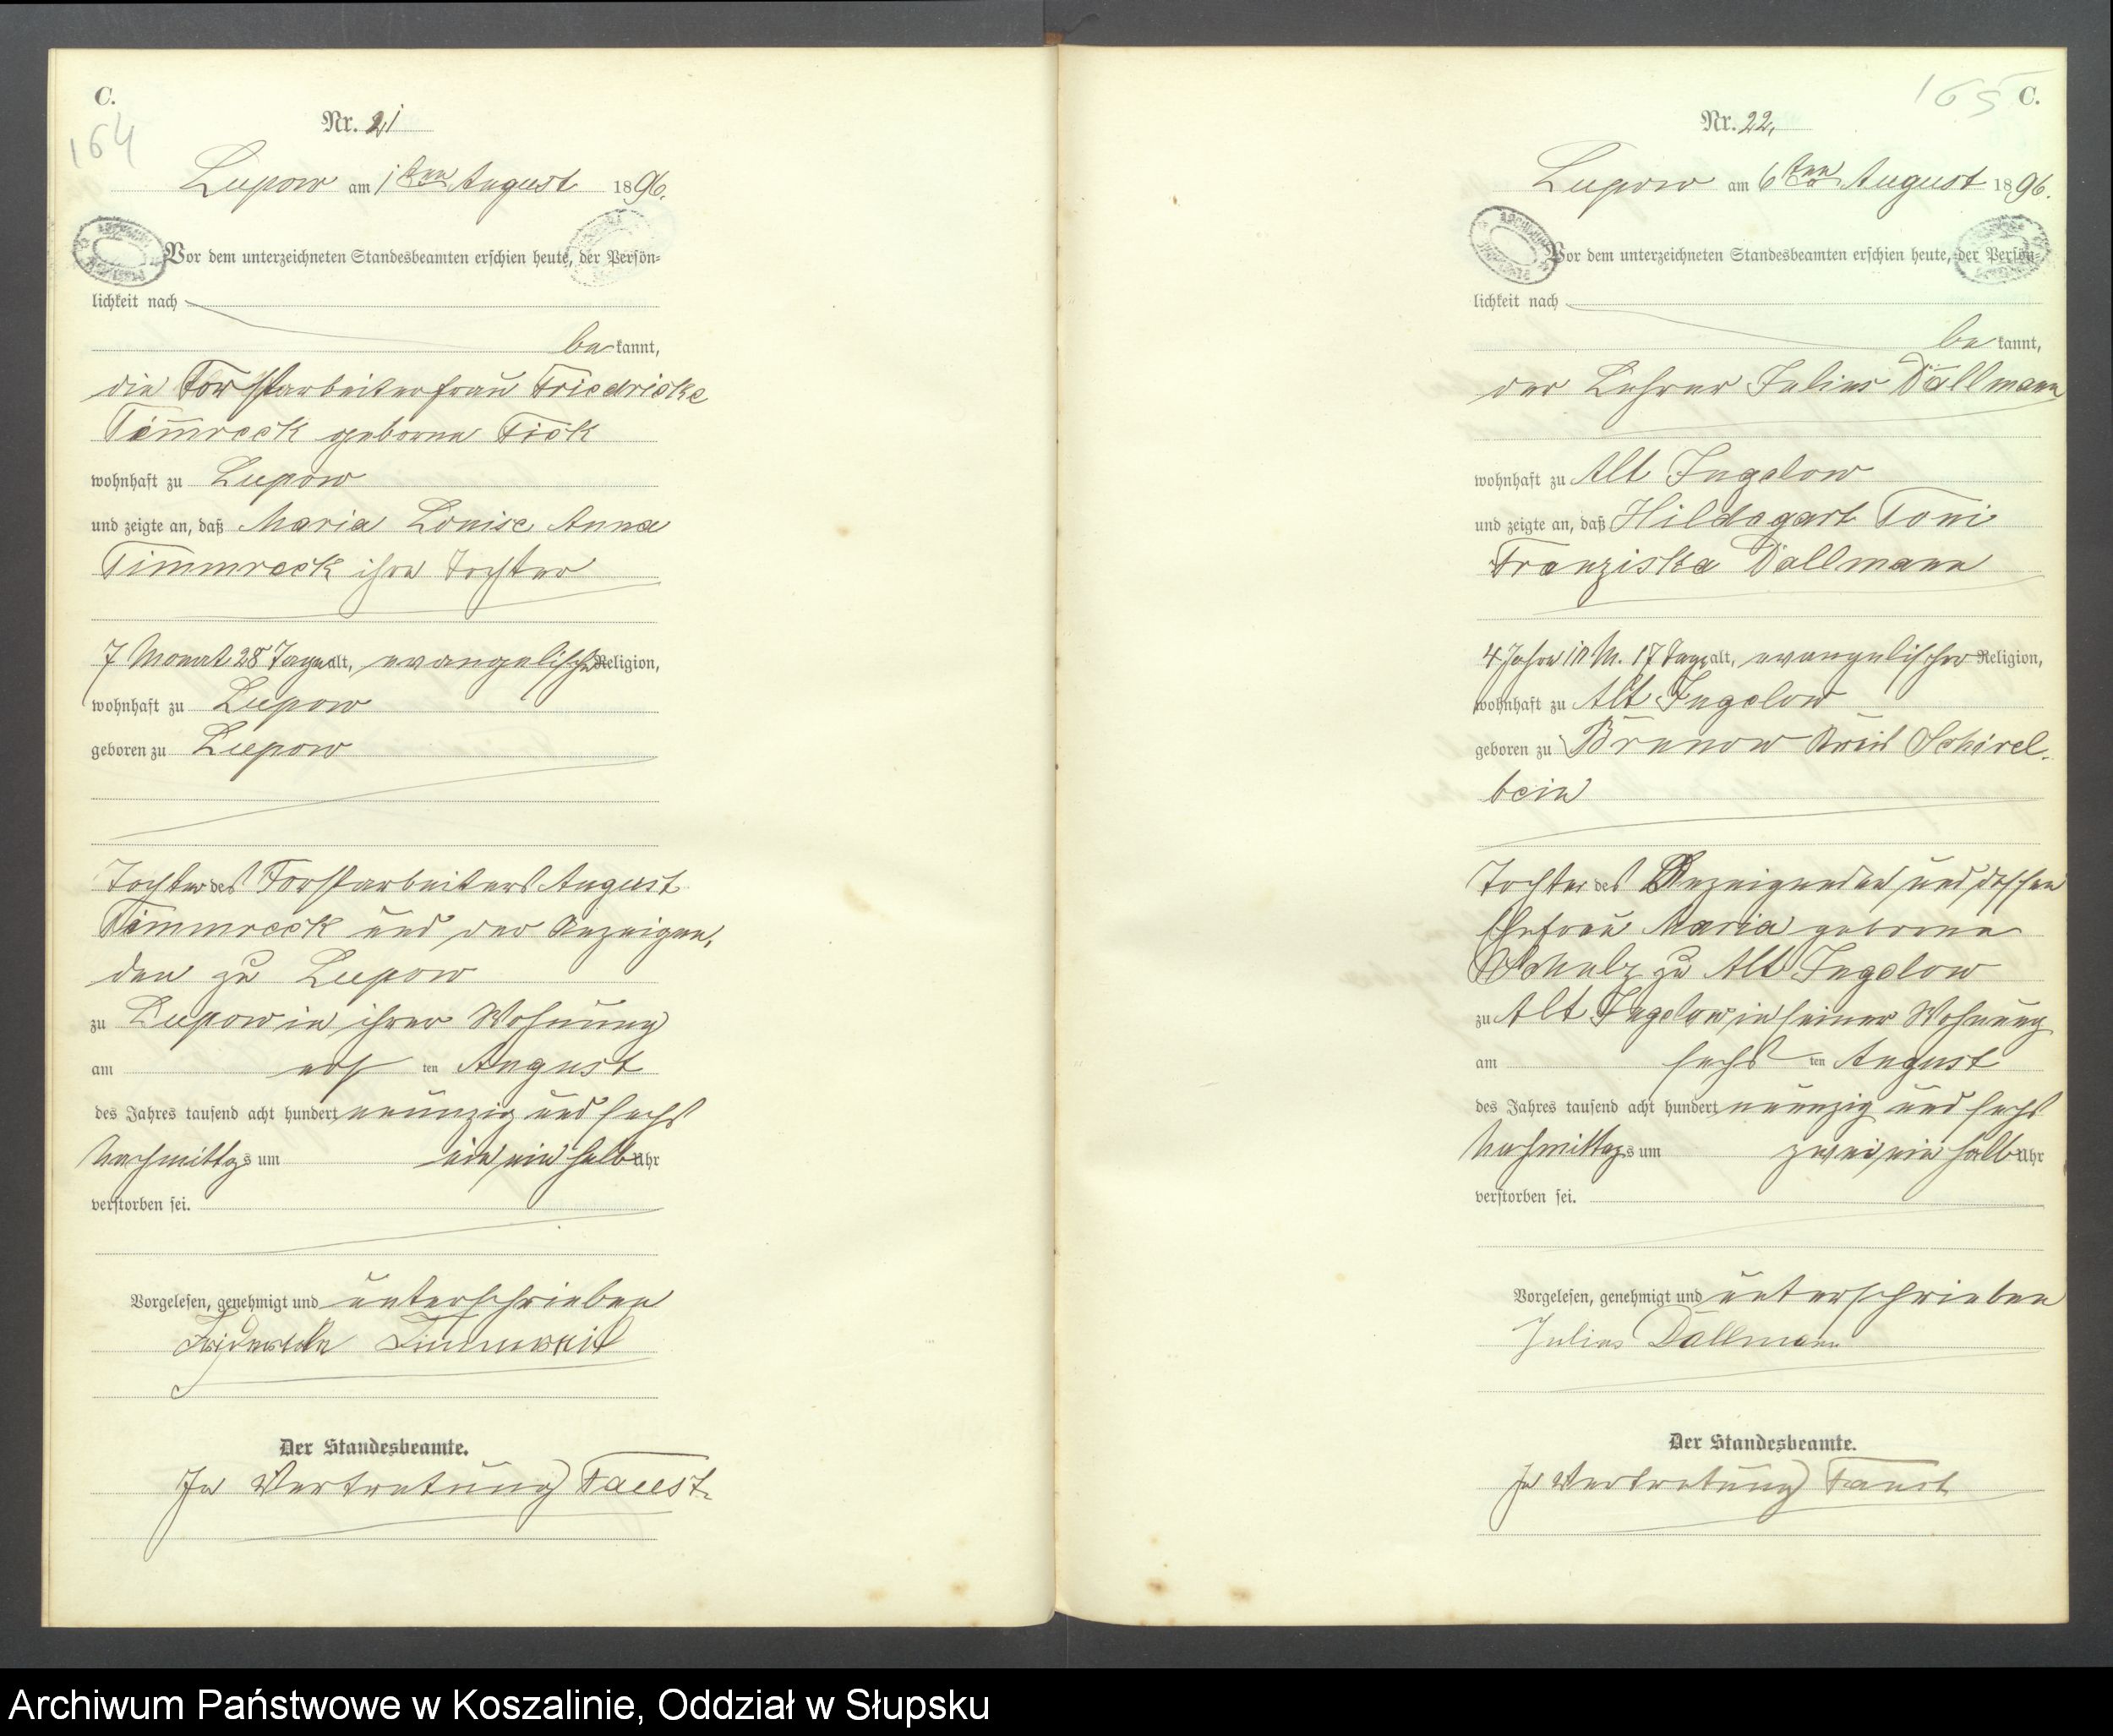 C.
164
Nr. 21
Lupow am 1ten August 1896.
Vor dem unterzeichneten Standesbeamten erschien heute, der Persön-
lichkeit nach
be kannt,
die Forstarbeiterfrau Friedricke
Timmreck geborne Fick
wohnhaft zu Lupow
und zeigte an, daß Maria Louise Anna
Timmreck ihre Tochter
7 Monat 28 Tage alt, evangelischer Religion,
wohnhaft zu Lupow
geboren zu Lupow
Tochter des Forstarbeiters August
Timmreck und der Anzeigen-
den zu Lupow
zu Lupow in ihrer Wohnung
am ersten August
des Jahres tausend acht hundert neunzig und sechs
Nachmittags um ein ein halb Uhr
verstorben sei.
Vorgelesen, genehmigt und unterschrieben
Der Standesbeamte.
In Vertretung Faust.
165
C.
Nr. 22.
Lupow am 6ten August 1896.
Vor dem unterzeichneten Standesbeamten erschien heute, der Persön-
lichkeit nach
be kannt,
der Lehrer Julius Dallmann
wohnhaft zu Alt Jugelow
und zeigte an, daß Hildegart Toni
Franziska Dallmann
4 Jahre 10 M. 17 Tage alt, evangelischer Religion,
wohnhaft zu Alt Jugelow
geboren zu Brunow Kreis Schivel-
bein
Tochter des Anzeigenden und dessen
Ehefrau Maria geborne
Schulz zu Alt Jugelow
zu Alt Jugelow in seiner Wohnung
am sechsten August
des Jahres tausend acht hundert neunzig und sechs
Nachmittags um zwei ein halb Uhr
verstorben sei.
Vorgelesen, genehmigt und unterschrieben
Julius Dallmann
Der Standesbeamte.
In Vertretung Faust
Archiwum Państwowe w Koszalinie, Oddział w Słupsku